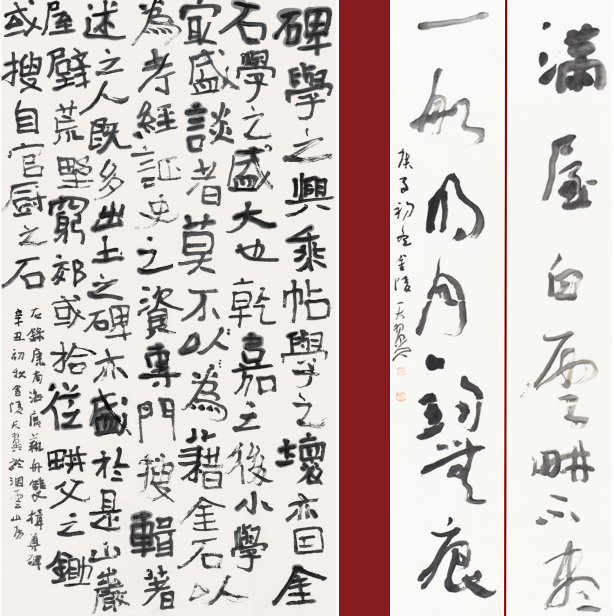 滿屋白雲畊不盡
一船明月釣無痕
庚子初冬金陵天翼
碑學之興乘帖學之壞亦因金
石學之盛大也乾嘉之後小學
冣盛談者莫不以為藉金石以
為考經証史之資專門搜輯著
述之人既多出土之碑亦盛於是山巖
屋壁荒野窮郊或拾從畊父之鋤
或搜自官厨之石
右錄康南海廣藝舟雙楫尊碑
辛丑初秋金陵天翼於洇雲山房